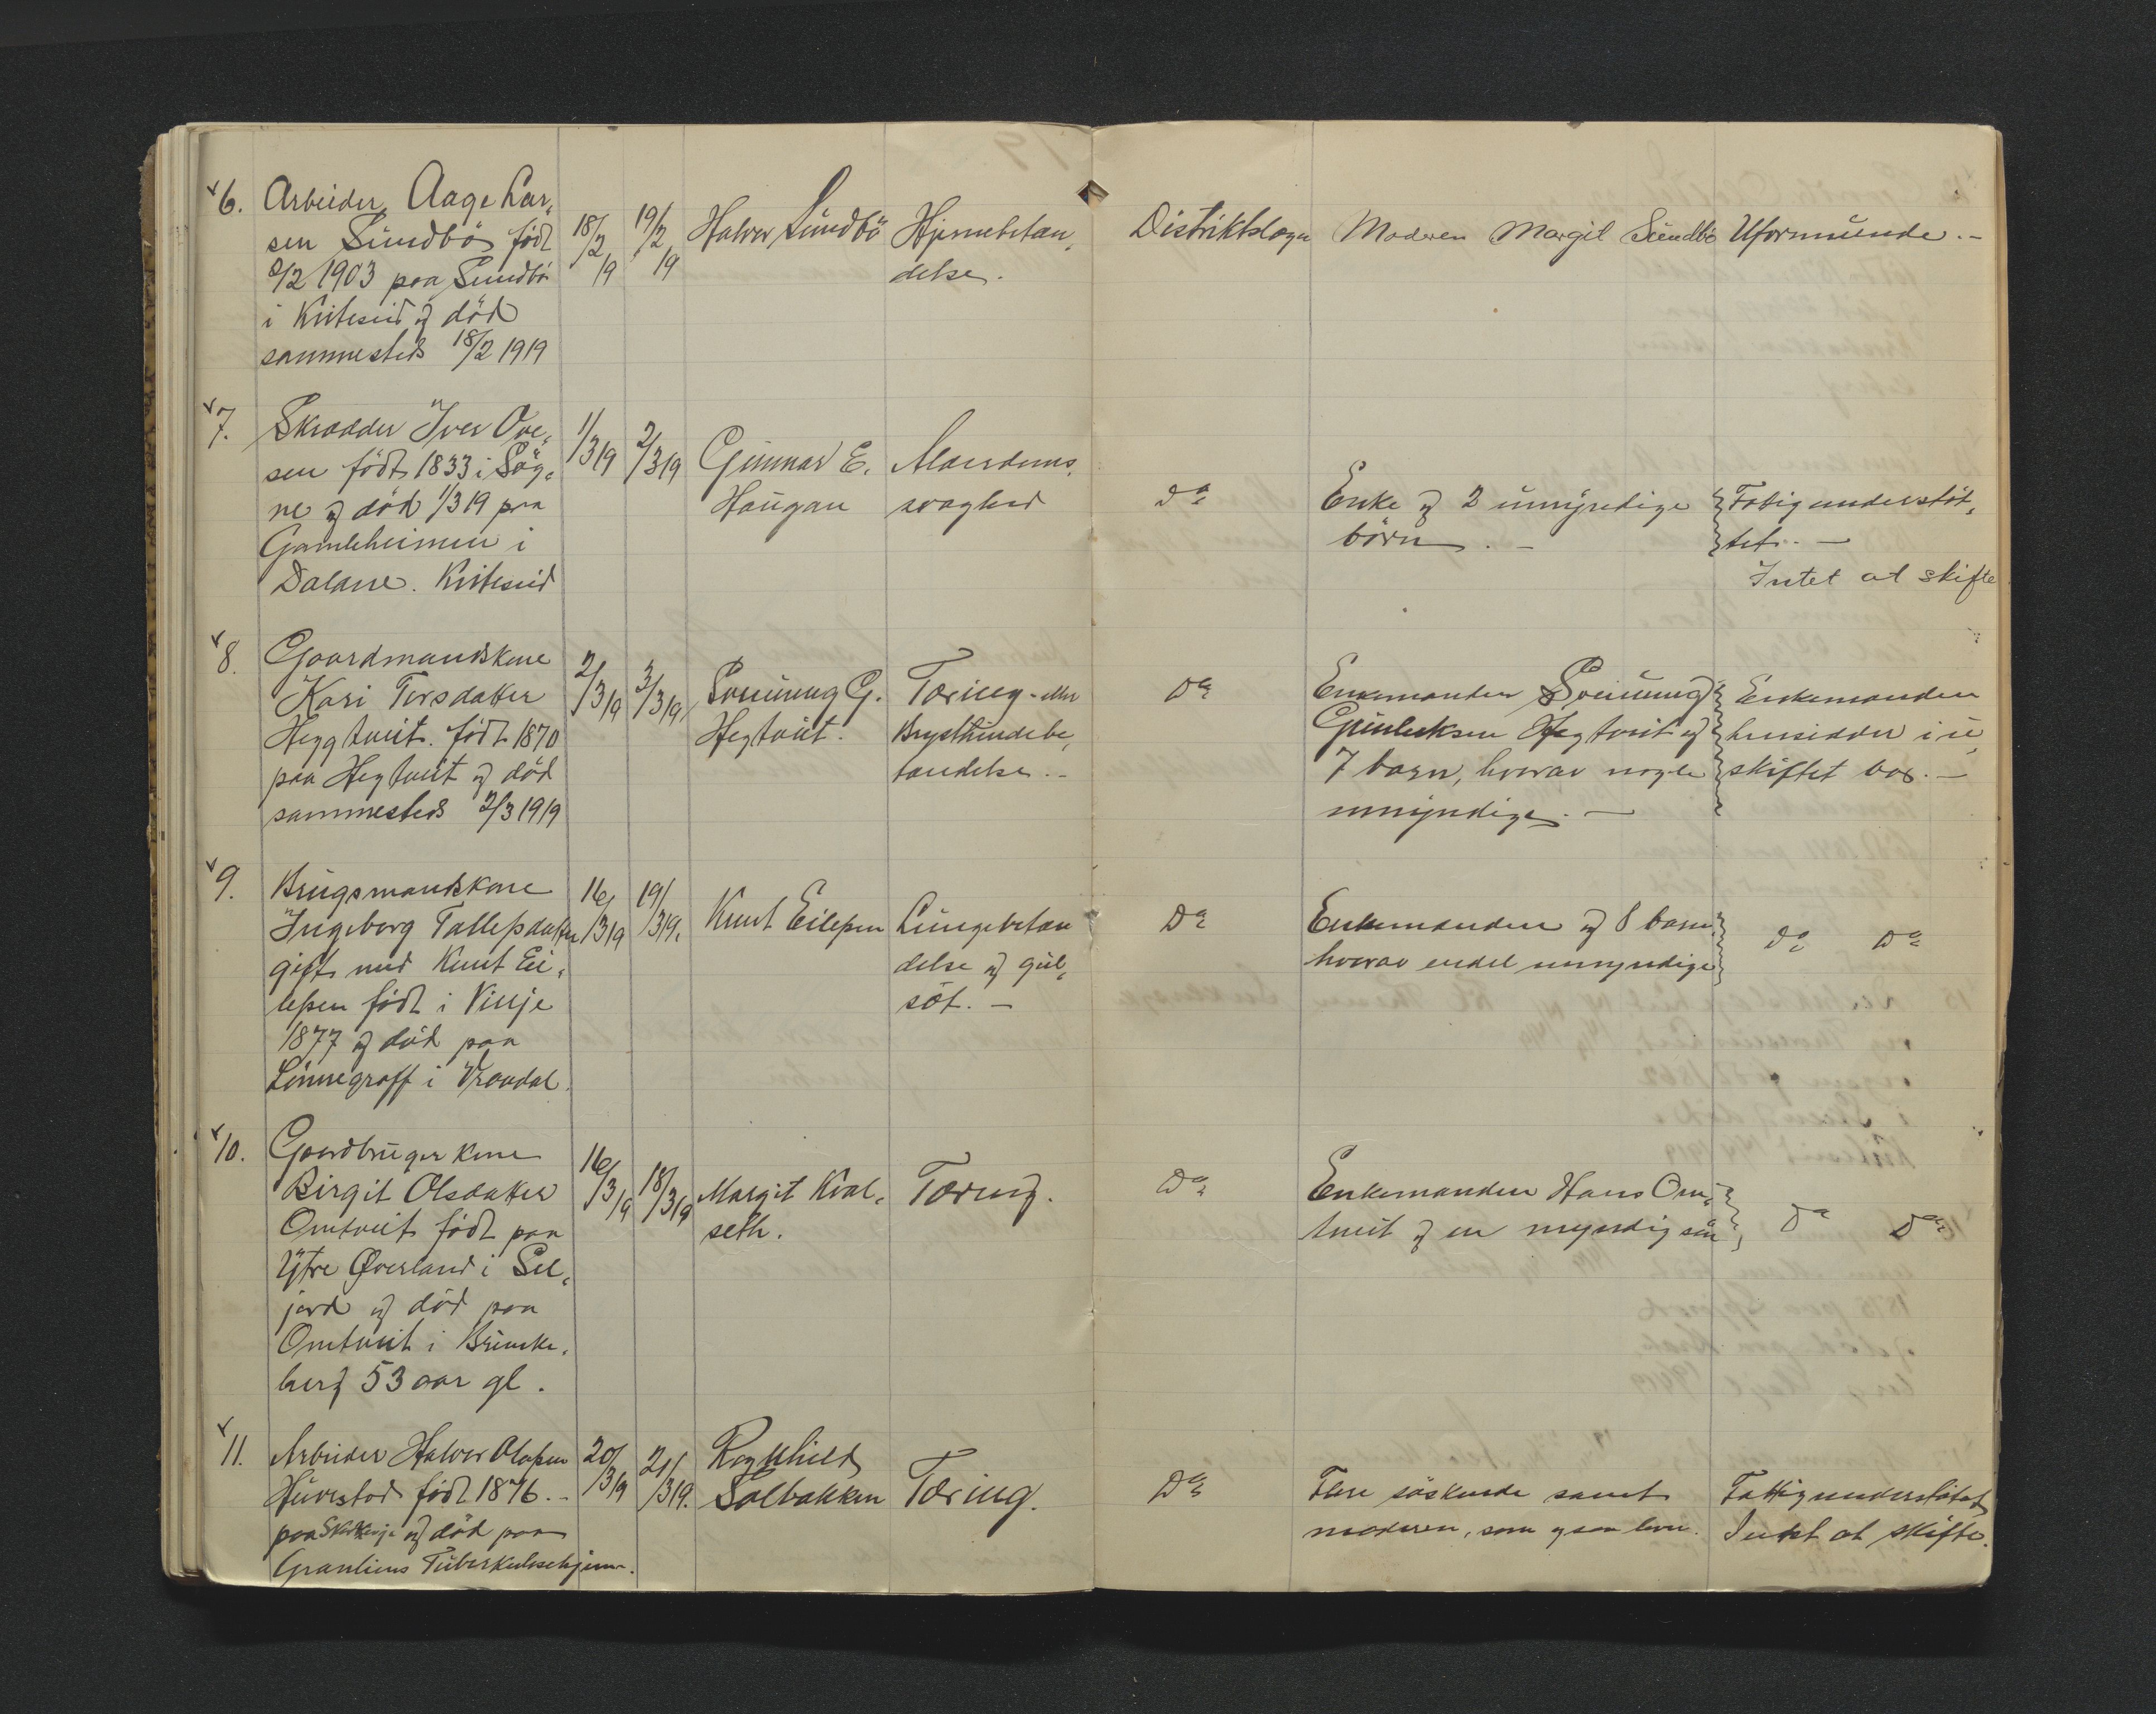 6. Arbeider Aage Lar-
sen Sundbö född
2/2 1903 paa Sundbö
i Kviteseid og död
sammesteds 18/2 1919
18/2 19
19/2 19
Halvor Sundbö
Hjernebetæn-
delse.
Distriktslægen
Moderen Margit Sundbö
Uformuende. -
7. Skrædder Iver Ove-
sen född 1833 i Sög-
ne og död 1/3 19 paa
Gamleheimen i
Dalane. Kviteseid
1/3 19
2/3 19
Gunnar E.
Haugan
Alderdoms
svaghed
Do
Enke og 2 umyndige
börn. -
Fatigunderstöt-
tet. -
Intet at skifte
8. Gaardmandskone
Kari Torsdatter
Heggtveit. född 1870
paa Hegtveit og död
sammesteds 2/3 1919
2/3 19
3/3 19
Sveinung G.
Hegtveit.
Tæring - eller
Brysthindebe-
tændelse. -
Do
Enkemanden Sveinung
Gunleiksen Hegtveit og
7 barn, hvorav nogle
umyndige. -
Enkemanden
hensidder i u-
skiftet bo. -
9. Brugsmandskone
Ingeborg Tallefsdatter
gift med Knut Ei-
lefsen född i Vinje
1877 og död paa
Lönnegraff i Vraadal.
16/3 19
19/3 19.
Knut Eilefsen
Lungebetæn
delse og gul-
sót. -
Do
Enkemanden og 8 barn
hvorav endel umyndige
Do Do
10. Gaardbruger kone
Birgit Olsdatter
Omtveit född paa
Ytre Øverland i Sel-
jord og död paa
Omtveit i Brunke-
berg 53 aar gl.
16/3 19
18/3 19
Margit Kval-
seth.
Tæring.
Do
Enkemanden Hans Om-
tveit og en myndig sön
Do Do
11. Arbeider Halvor Olafsen
Huvestad född 1876. -
paa og död paa
Granliens Tuberkulosehjem.
20/3 19
21/3 19.
Ragnhild
Solbakken
Tæring.
Do
Flere söskende samt
moderen, som ogsaa lever.
Fattigunderstöttet
Intet at skifte.